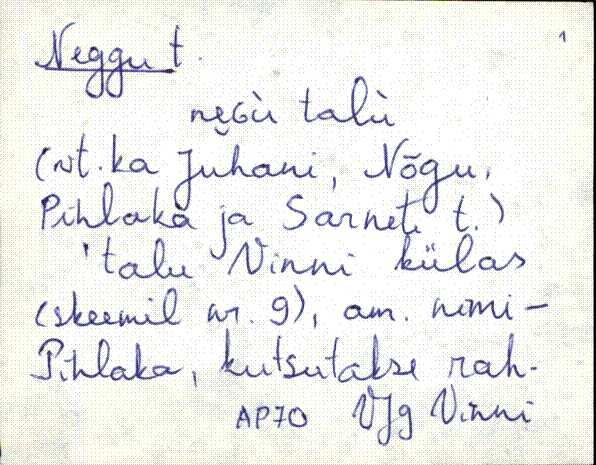 Neggu t.
1
nęɢù talù
(vt. ka Juhani, Nõgu,
Pihlaka ja Sarneti t.)
'talu Vinni külas
(skeemil nr. 9), am. nimi-
Pihlaka, kutsutakse rah-
AP70 VJg Vinni